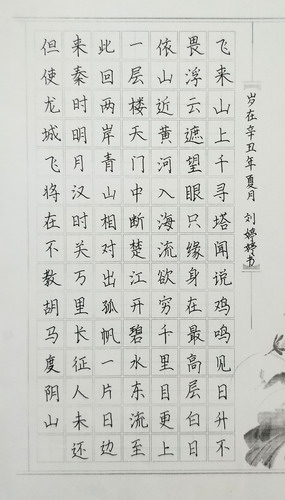 岁在辛丑年夏月刘婷婷书
飞来山上千寻塔闻说鸡鸣见日升不
畏浮云遮望眼只缘身在最高层白日
依山近黄河入海流欲穷千里目更上
一层楼天门中断楚江开碧水东流至
此回两岸青山相对出孤帆一片日边
来秦时明月汉时关万里长征人未还
但使龙城飞将在不教胡马度阴山